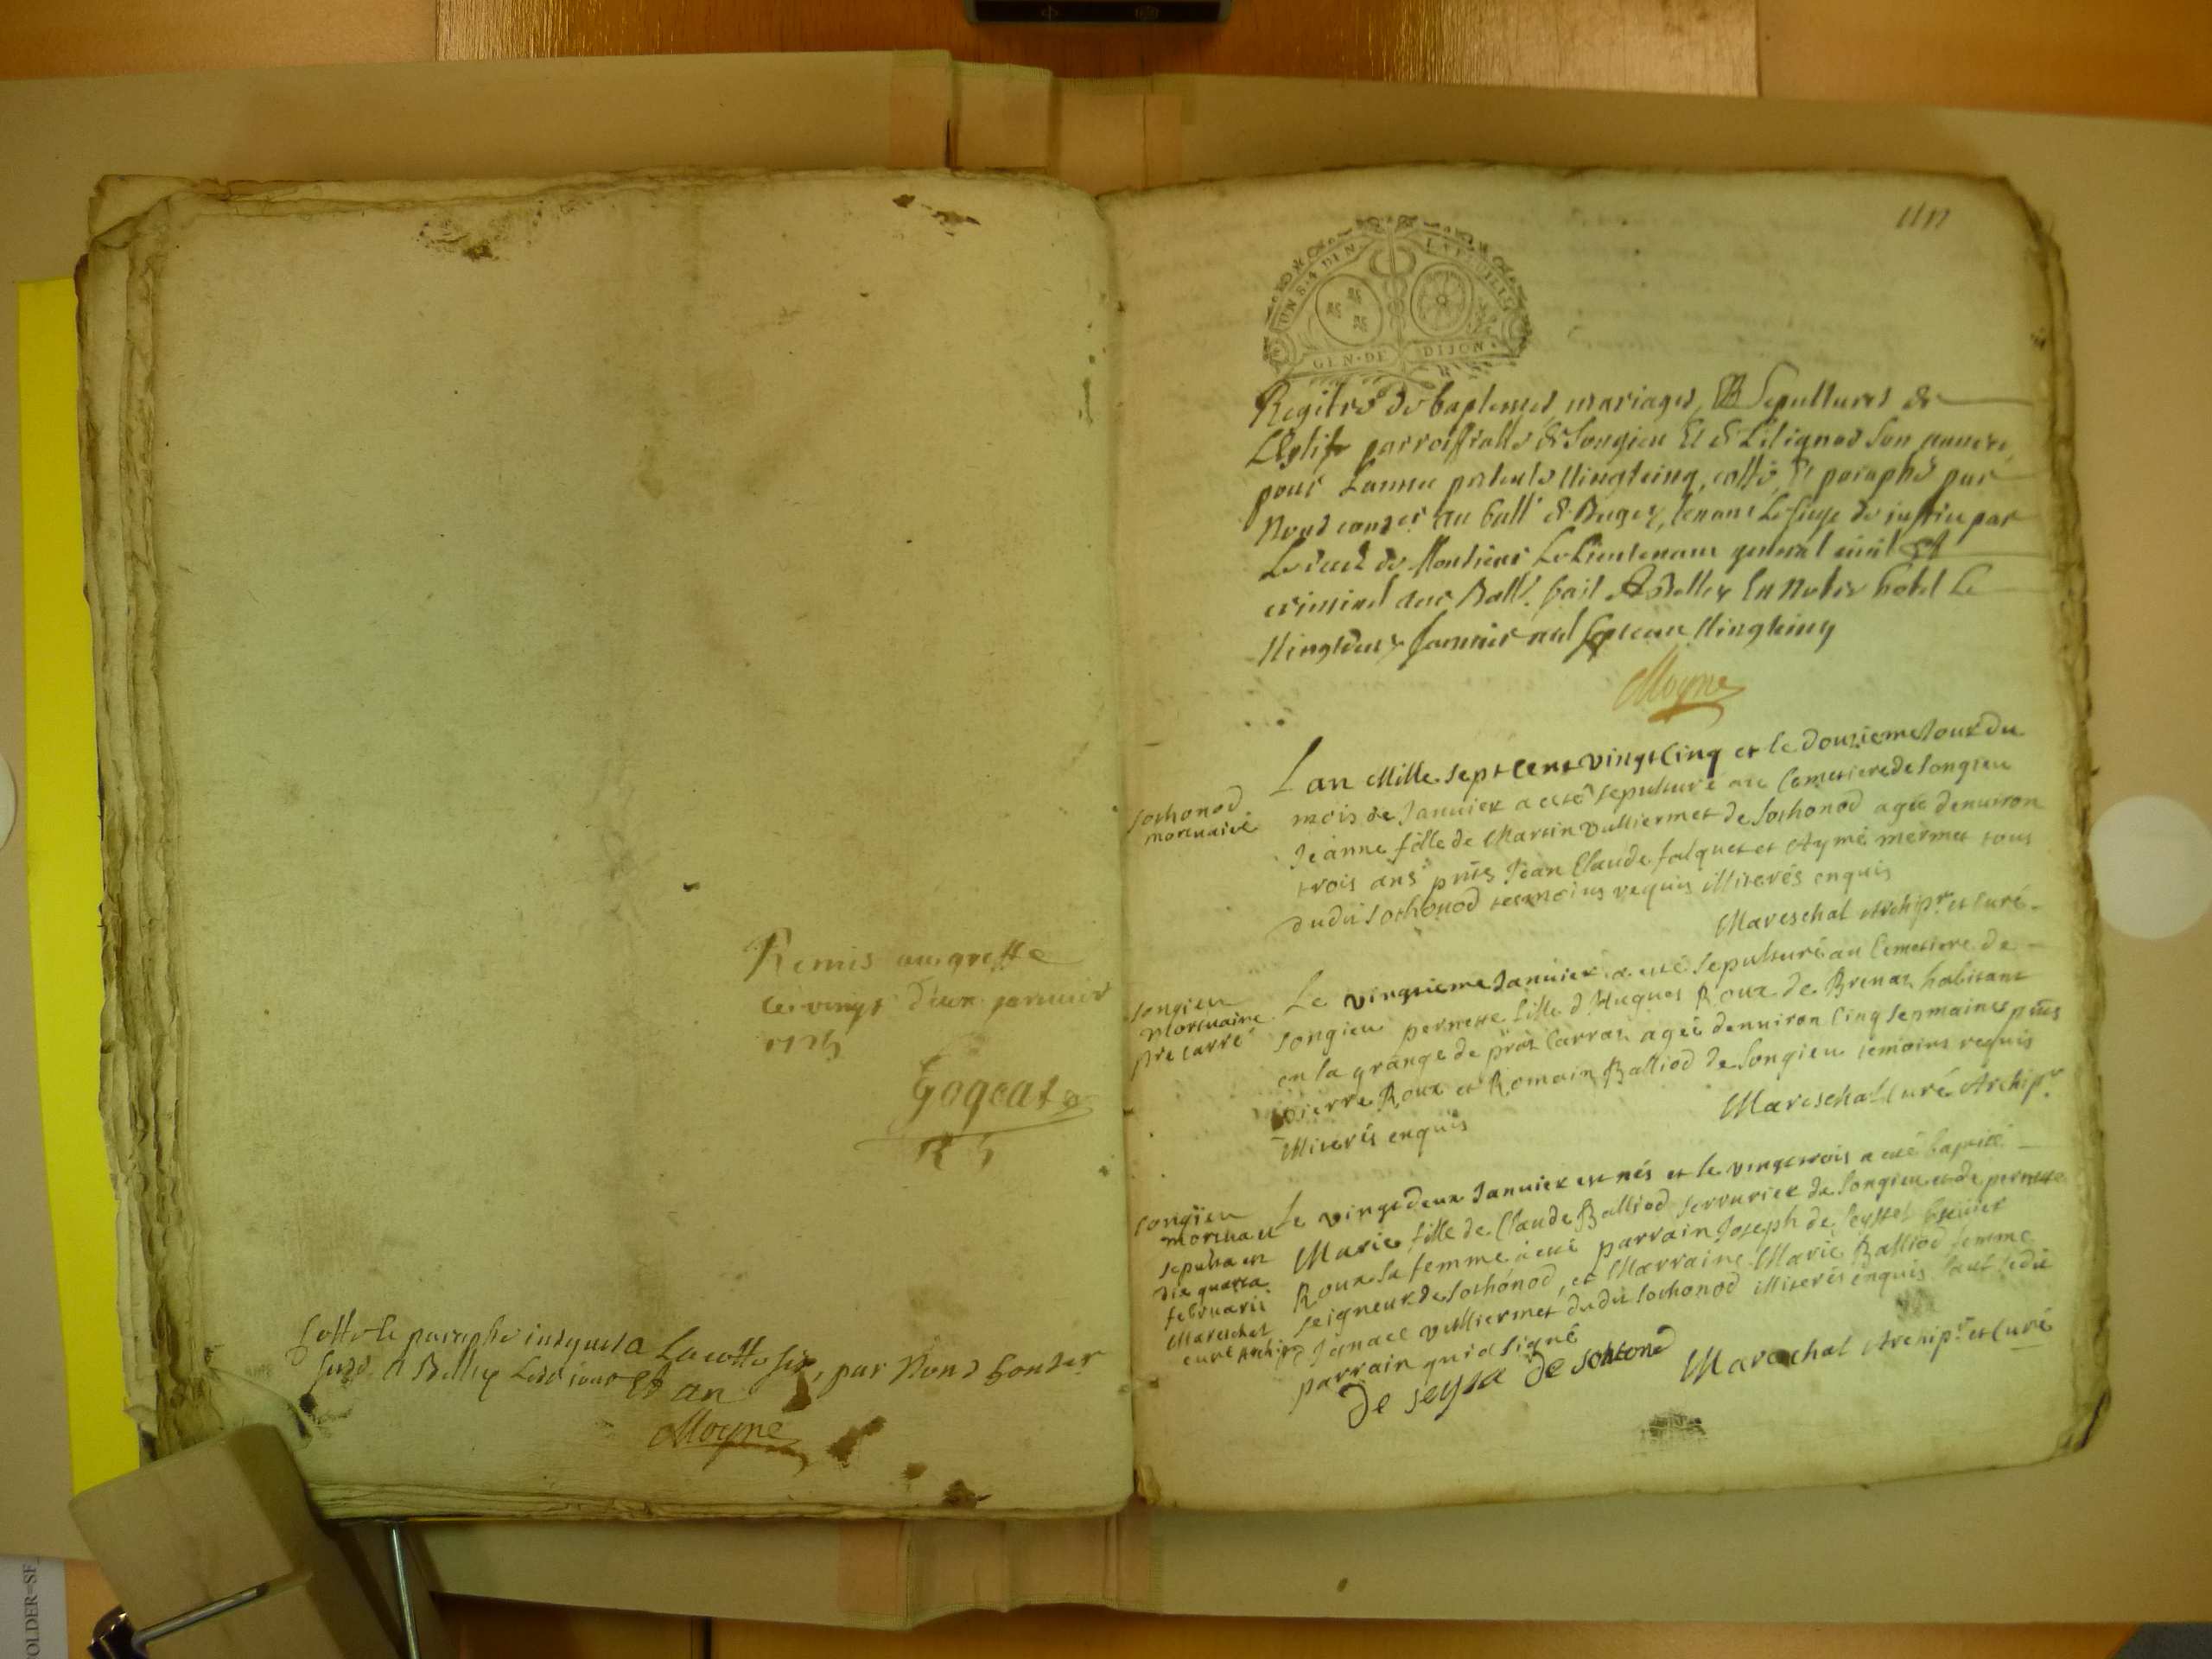 Remis au greffe
le vingt deux janvier
1725
Gogeat
R 5
Cotté et paraphé jusques a la cotte six, par Nous Conser
susd. A Belley lesd jour Et an
Moyne
UN S. 4 DEN. LA FEUILLE
GEN. DE DIJON
Registre de baptesmes, mariages, Et Sepultures de
L'Eglise parroissialle de Songieu Et de Lilignod son annexe,
pour L'année presente Vingtcinq, cotté, Et paraphé par
Nous conser au Ball. de Bugey, tenant Le siege de justice par
Le deces de Monsieur Le Lieutenant general civil Et
criminel aud Ball. fait A Belley En Notre hotel Le
Vingtdeux Janvier mil sept cent Vingtcinq
Moyne
sothonod
mortuaire
Lan Mille sept Cent vingt Cinq et le douzieme Jour du
mois de Janvier a eté sepulturé au Cemetiere de Songieu
Jeanne fille de Martin Vulliermet de Sothonod ageé denviron
trois ans pnts Jean Claude falquet et Aymé mermet tous
dudit Sothonod temoins requis illiterés enquis
Mareschal Archipr et Curé
songieu
mortuaire
pre carré
Le vingtieme Janvier a eté sepulturé au Cemetiere de
songieu pernette fille d'Hugues Roux de Brenaz habitant
en la grange de praz Carraz ageé denviron Cinq sepmaines pnts
pierre Roux et Romain Balliod de songieu temoins requis
illiterés enquis
Mareschal Curé Archipr
songieu
mortua et
sepulta est
die quarta
februarii
Mareschal
curé Archipr
Le vingt deux Janvier est neé et le vingt trois a eté baptisé
Marie fille de Claude Balliod serrurier de songieu et de pernette
Roux sa femme a eté parrain Joseph de seyssel Ecuier
seigneur de Sothonod, et Marraine Marie Balliod femme
d'Ignace Vulliermet dudit Sothonod illiterés enquis sauf ledit
parrain qui a signé
De seyssel De sothonod
Mareschal Archipr et Curé
OLDER=SF